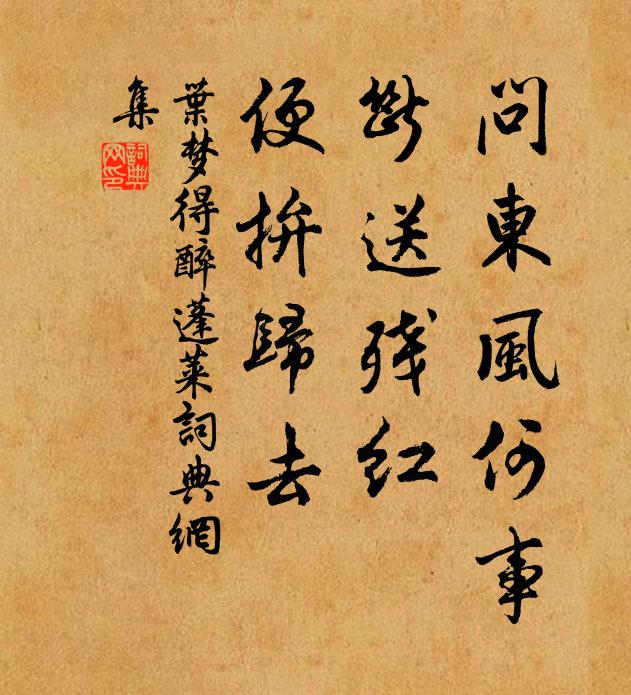 問東風何事
断送残红
便拚歸去
葉梦得醉蓬萊詞典網
集
詞典网印